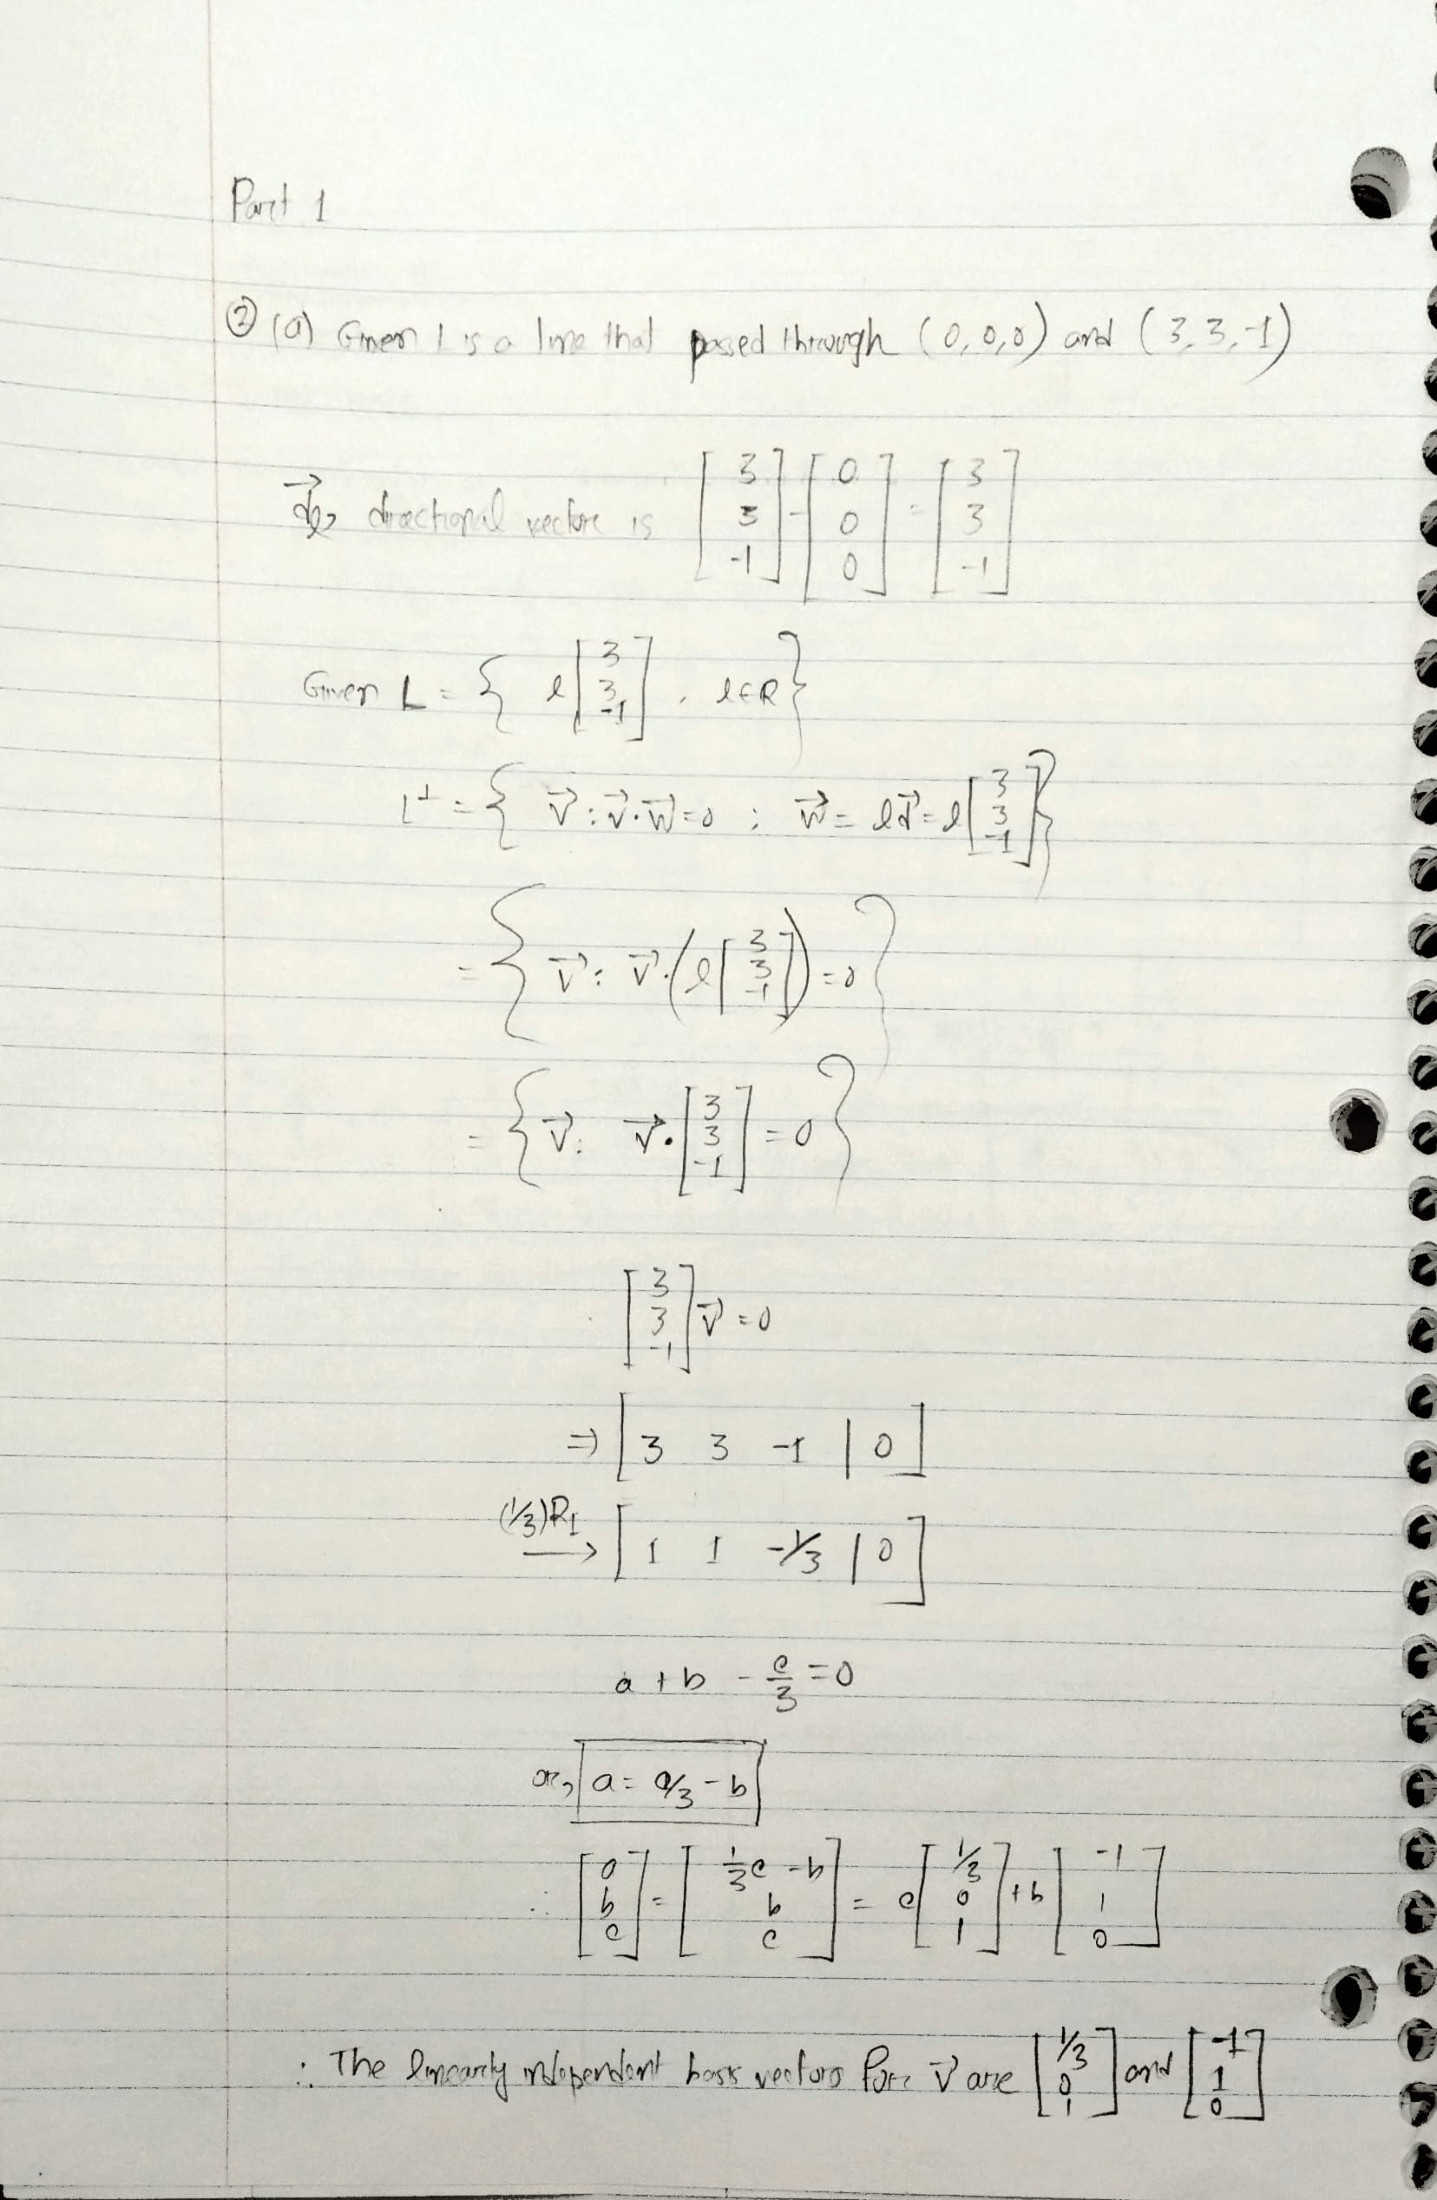 Part 1
② (a) Given L is a line that passed through (0,0,0) and (3,3,-1)
directional vector is [3 3 -1] - [0 0 0] = [3 3 -1]
Given L = { l [3 3 -1] , l∈R }
L⊥ = { v⃗ : v⃗·w⃗ = 0 ; w⃗ = l d⃗ = l [3 3 -1] }
= { v⃗ : v⃗·( l [3 3 -1] ) = 0 }
= { v⃗ : v⃗ · [3 3 -1] = 0 }
[3 3 -1] v⃗ = 0
⇒ [ 3 3 -1 | 0 ]
(1/3)R1 → [ 1 1 -1/3 | 0 ]
a + b - c/3 = 0
or, a = c/3 - b
∴ [a b c] = [1/3c - b b c] = c [1/3 0 1] + b [-1 1 0]
∴ The linearly independent basis vectors for v⃗ are [1/3 0 1] and [-1 1 0]